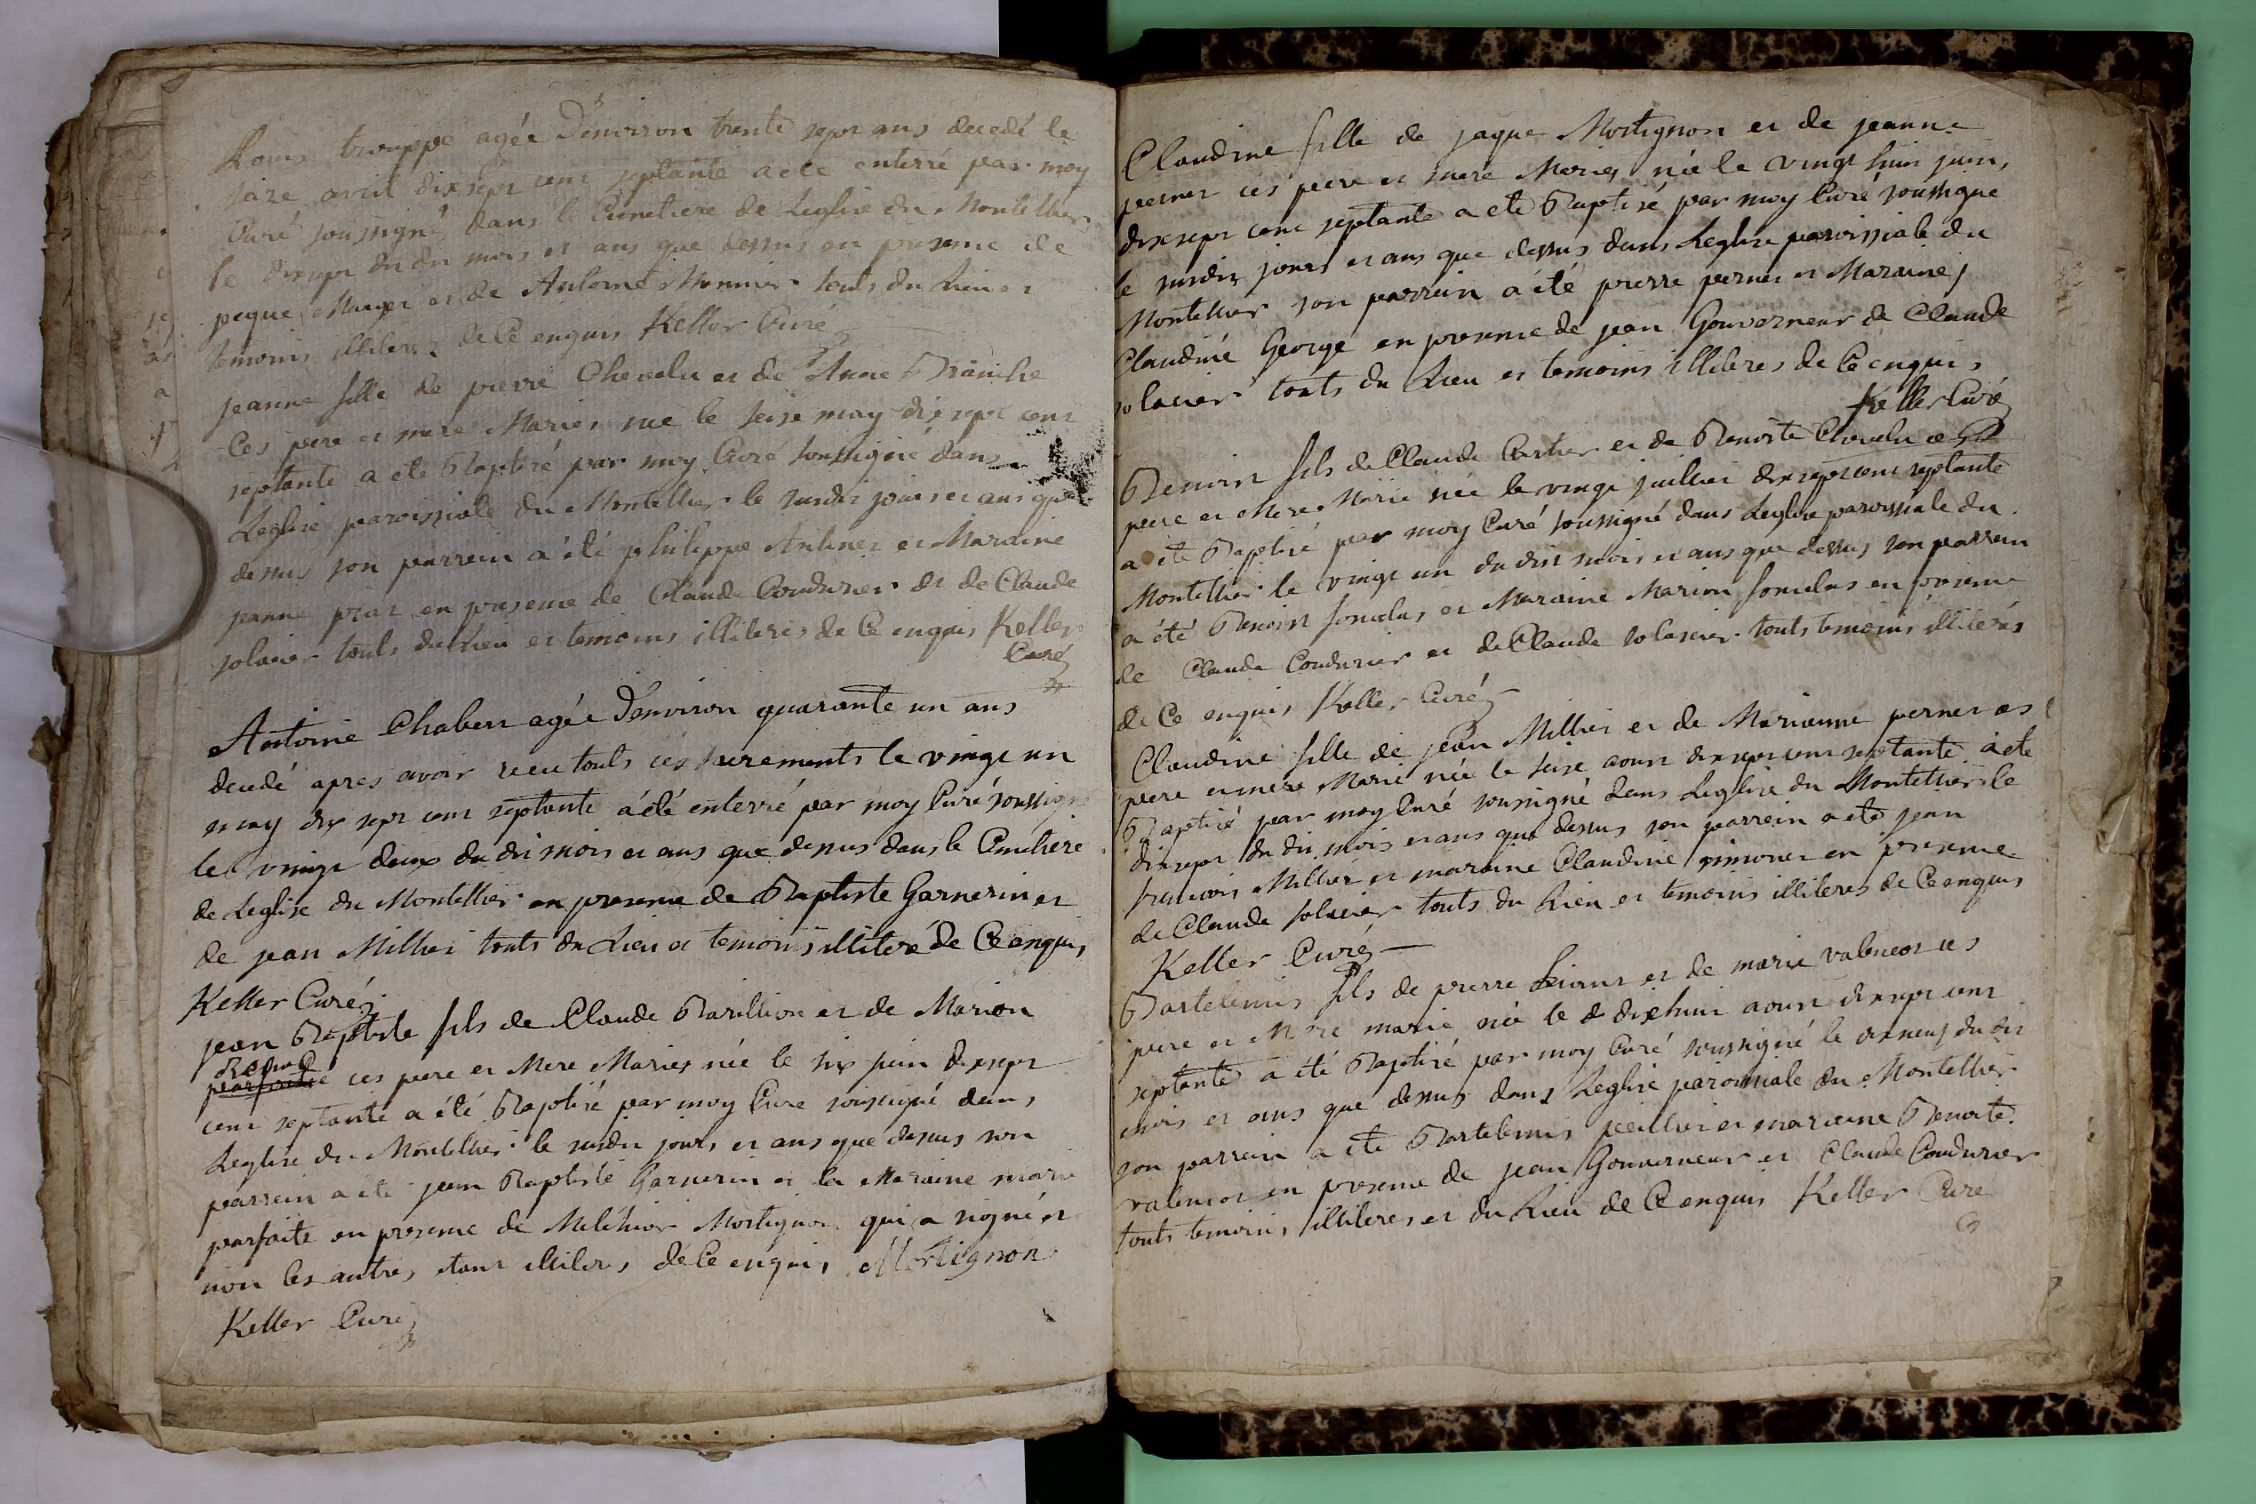 Louis trouppe agée D'environ trente sept ans decedé le
saize avril dix sept cent septante a ete enterré par moy
Curé soussigné dans le Cimetiere de Leglise du Montellier
le dixsept du du mois et ans que dessus en presence de
et de Antoine Monnier touts du Lieu et
temoins illiteres de Ce enquis Keller Curé
jeanne fille de pierre Chevalu et de Anne Branche
Ces pere et mere Mariés née le seise may dix sept cent
septante a ete Baptisé par moy Curé soussigné dans
Leglise paroissiale du Montellier le susdit jours et ans que
dessus son parrein a été philippe et Maraine
janne en presence de Claude Condurier et de Claude
solacier touts du Lieu et temoins illiteres de Ce enquis Keller
Curé
Antoine Chabert agée D'environ quarante un ans
decedé apres avoir receu touts ces sacrements le vingt un
may dix sept cent septante a été enterré par moy Curé soussigné
le vingt deux du dit mois et ans que dessus dans le Cimetiere
de Leglise du Montellier en presence de Baptiste Garnerin et
de jean Millier touts du Lieu et temoins illiteré de Ce enquis
Keller Curé
jean Baptiste fils de Claude Barillion et de Marion
ces pere et Mere Mariés née le six juin dixsept
cent septante a été Baptisé par moy Cure soussigné dans
Leglise du Montellier le susdit jours et ans que dessus son
parrein a été jean Baptiste Garnerin et la Maraine marie
parfaite en presence de Melchior Mortignon qui a signé et
non les autres etant illiteres de Ce enquis Mortignon
Keller Curé
Claudine fille de jaque Mortignon et de jeanne
pernet ces pere et mere Mariés née le vingt huit juin
dixsept cent septante a ete Baptisé par moy Curé soussigné
le susdit jours et ans que dessus dans Leglise paroissiale du
Montellier son parrein a été pierre pernet et Maraine
Claudine George en presence de jean Gouverneur de Claude
solacier touts du Lieu et temoins illiteres de Ce enquis
Keller Curé
Benoist fils de Claude Cartier et de Benoite Chevalu ces
pere et Mere Marié née le vingt juillet dix sept cent septante
a été Baptisé par moy Curé soussigné dans Leglise paroissiale du
Montellier le vingt un du dit mois et ans que dessus son parrein
a été Benoist et Maraine Marion en presence
de Claude Condurier et de Claude solacier touts temoins illiterés
de Ce enquis Keller Curé
Claudine fille de jean Millier et de Marianne pernet ces
pere et mere Marié née le seise aoust dix sept cent septante a ete
Baptisé par moy Curé soussigné dans Leglise du Montellier le
dixsept du dit mois et ans que dessus son parrein a ete jean
francois Millier et maraine Claudine simonet en presence
de Claude solacier touts du Lieu et temoins illiteres de Ce enquis
Keller Curé
Bartelemis fils de pierre et de marie valencot ces
pere et Mere marié née le dixhuit aoust dixsept cent
septante a été Baptisé par moy Curé soussigné le dixneuf du dit
mois et ans que dessus dans Leglise paroissiale du Montellier
son parrein a ete Bartelemis et maraine Benoite
valencot en presence de jean Gouverneur et Claude Condurier
touts temoins illiteres et du Lieu de Ce enquis Keller Curé